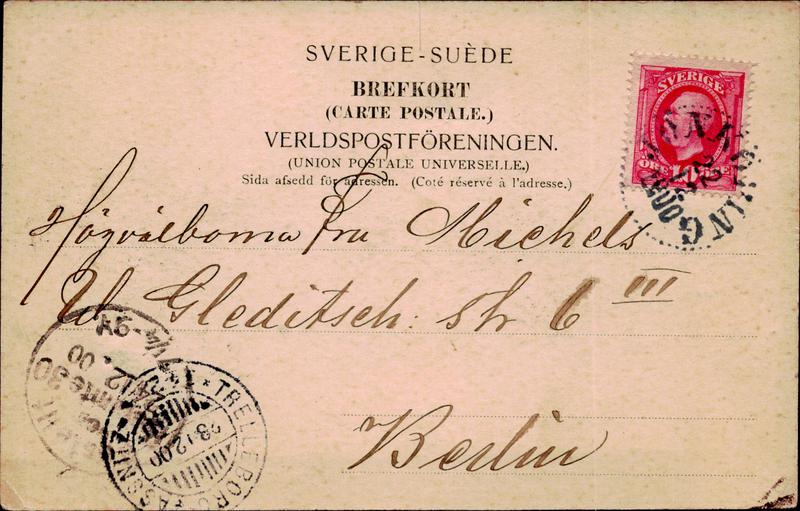 SVERIGE-SUÈDE
BREFKORT
(CARTE POSTALE.)
VERLDSPOSTFÖRENINGEN.
(UNION POSTALE UNIVERSELLE.)
Sida afsedd för adressen. (Coté réservé à l'adresse.)
SVERIGE
ÖRE 10 ÖRE
Högvälborna Fru Michels
W Gleditsch: str 6 III
Berlin
TRELLEBORG SASSNITZ
23.12.00